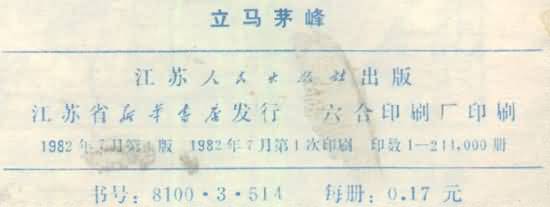 立马茅峰
江苏人民出版社出版
江苏省新华书店发行 六合印刷厂印刷
1982年7月第1版 1982年7月第1次印刷 印数1—244,000册
书号:8100·3·514 每册:0.17元